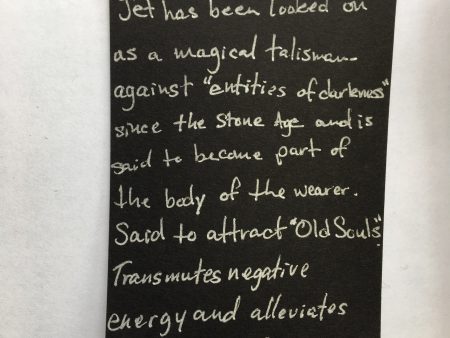 Jet has been looked on
as a magical talisman
against "entities of darkness"
since the Stone Age and is
said to become part of
the body of the wearer.
Said to attract "Old Souls"
Transmutes negative
energy and alleviates